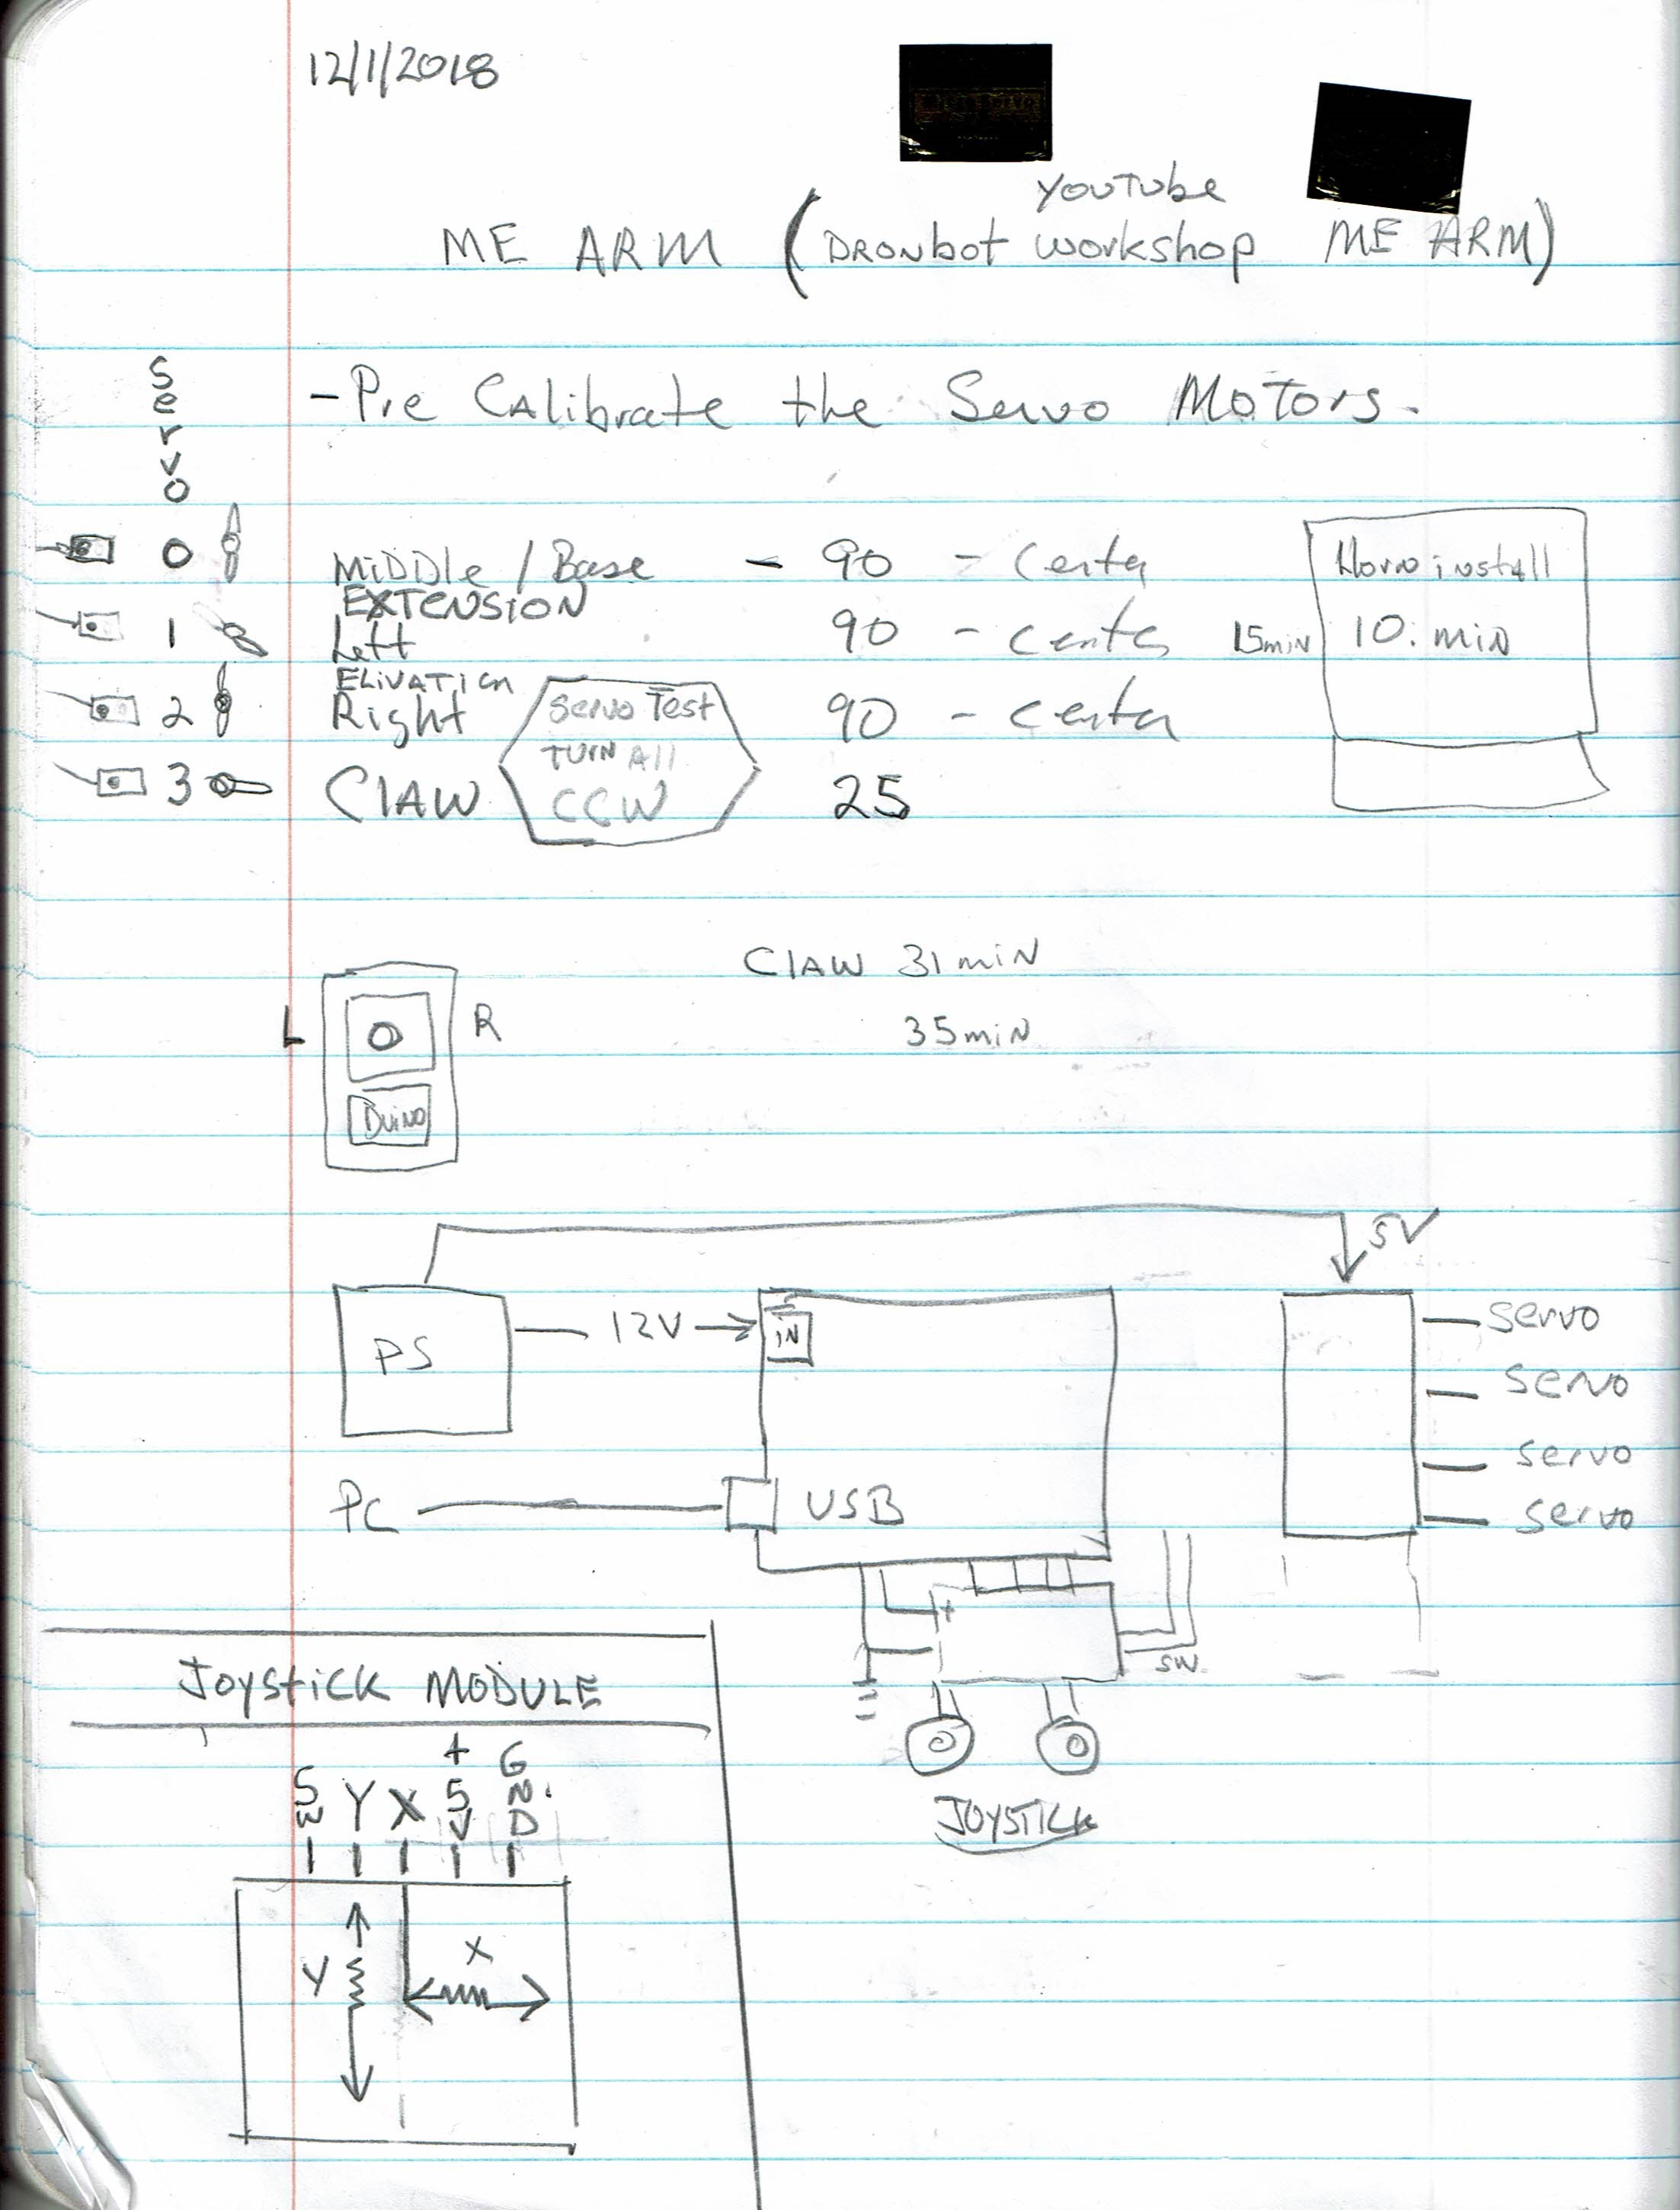 12/1/2018
YOUTUBE
ME ARM (DRONbot workshop ME ARM)
Servo
- Pre Calibrate the Servo Motors.
0 MiDDle / Base - 90 - Center
Horn install
EXTENSION
1 Left 90 - Center 15min 10: min
ELIVATION
2 Right 90 - Center
Servo Test
TURN All
CCW
3 ClAW 25
ClAW 31 miN
35 miN
L R
DuiNo
5V
PS 12V iN
servo
servo
servo
servo
PC USB
+
SW.
JOYSTICK
JoystiCK MODULE
SW Y X +5V GND
Y X